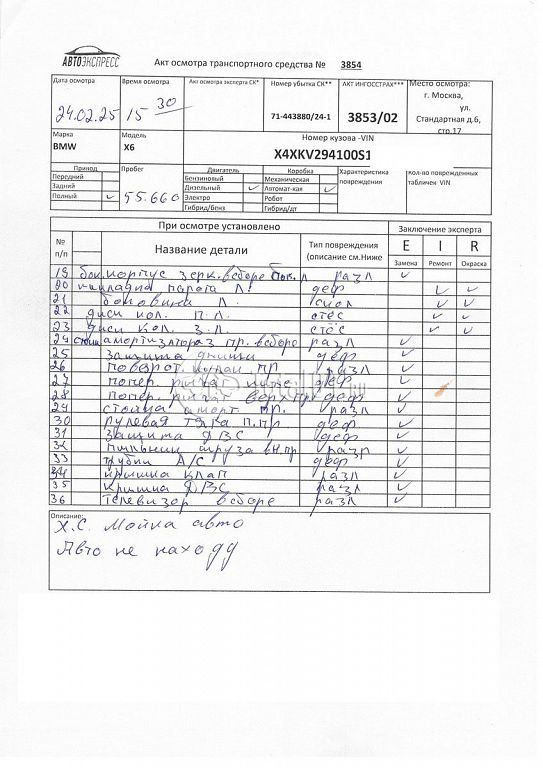 АВТОЭКСПРЕСС
Акт осмотра транспортного средства № 3854
Дата осмотра Время осмотра Акт осмотра эксперта СК* Номер убытка СК** АКТ ИНГОССТРАХ*** Место осмотра:
24.02.25 15 30 71-443880/24-1 3853/02 г. Москва,
ул.
Стандартная д.6,
стр.17
Марка Модель Номер кузова -VIN
BMW X6 X4XKV294100S1
Привод Пробег Двигатель Коробка Характеристика повреждения кол-во поврежденных табличек VIN
Передний Бензиновый Механическая
Задний Дизельный ✓ Автомат-кая ✓
Полный ✓ 55.660 Электро Робот
Гибрид/бенз Гибрид/дт
При осмотре установлено Заключение эксперта
№ п/п Название детали Тип повреждения (описание см.Ниже E I R
Замена Ремонт Окраска
19 бок. корпус зерк. в сборе разл ✓
20 накладка порога Л. деф ✓ ✓
21 боковина Л. скол ✓ ✓
22 диск кол. П.Л. стёс ✓ ✓
23 диск кол. З.Л. стёс ✓ ✓
24 амортизатора з пр. в сборе разл ✓
25 защита днища деф ✓
26 поворот. кулак пр разл ✓
27 попер. рычаг ниж деф ✓
28 попер. рычаг верх пр деф ✓
29 стойка аморт пр. разл ✓
30 рулевая тяга п.пр деф ✓
31 защита ДВС деф ✓
32 пыльник шруза вн.пр разл ✓
33 трубки А/С деф ✓
34 крышка клап разл ✓
35 крышка ДВС разл ✓
36 телевизор в сборе разл ✓
Описание:
Х.С. Мойка авто
Авто не на ходу